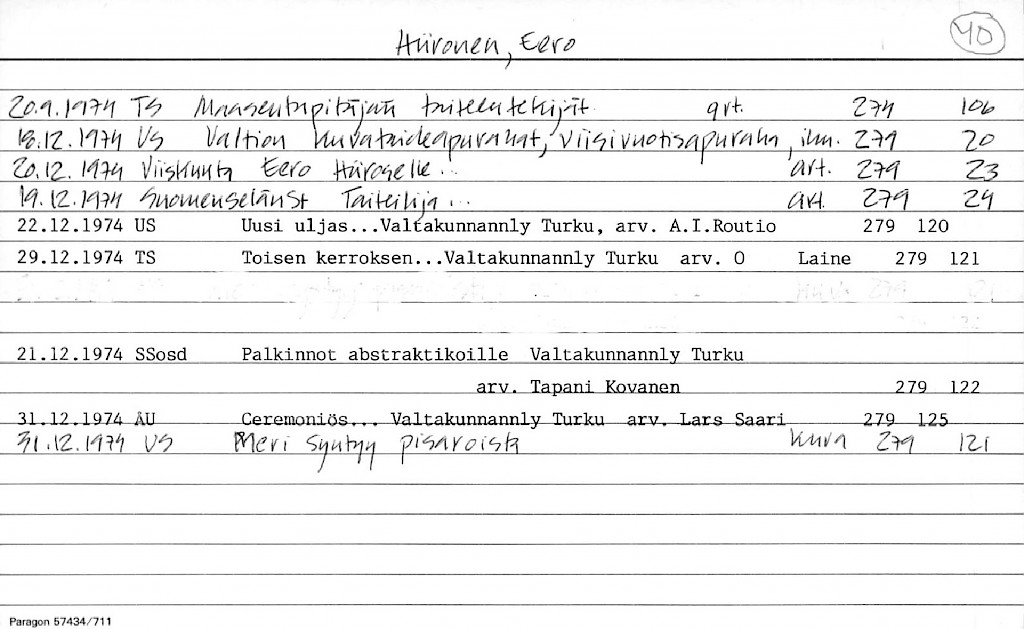 Hiironen, Eero
40
20.9.1974 TS Maasentupitäjän taiteentekijät. art. 274 106
18.12.1974 US Valtion kuvataideapurahat, viisivuotisapuraha, ilm. 279 20
20.12.1974 Viiskunta Eero Hiiroselle... art. 279 23
19.12.1974 Suomenselän St Taiteilija... art. 279 24
22.12.1974 US Uusi uljas...Valtakunnannly Turku, arv. A.I.Routio 279 120
29.12.1974 TS Toisen kerroksen...Valtakunnannly Turku arv. O Laine 279 121
21.12.1974 SSosd Palkinnot abstraktikoille Valtakunnannly Turku
arv. Tapani Kovanen 279 122
31.12.1974 ÅU Ceremoniös... Valtakunnannly Turku arv. Lars Saari 279 125
31.12.1974 US Meri syntyy pisaroista kuva 279 121
Paragon 57434/711